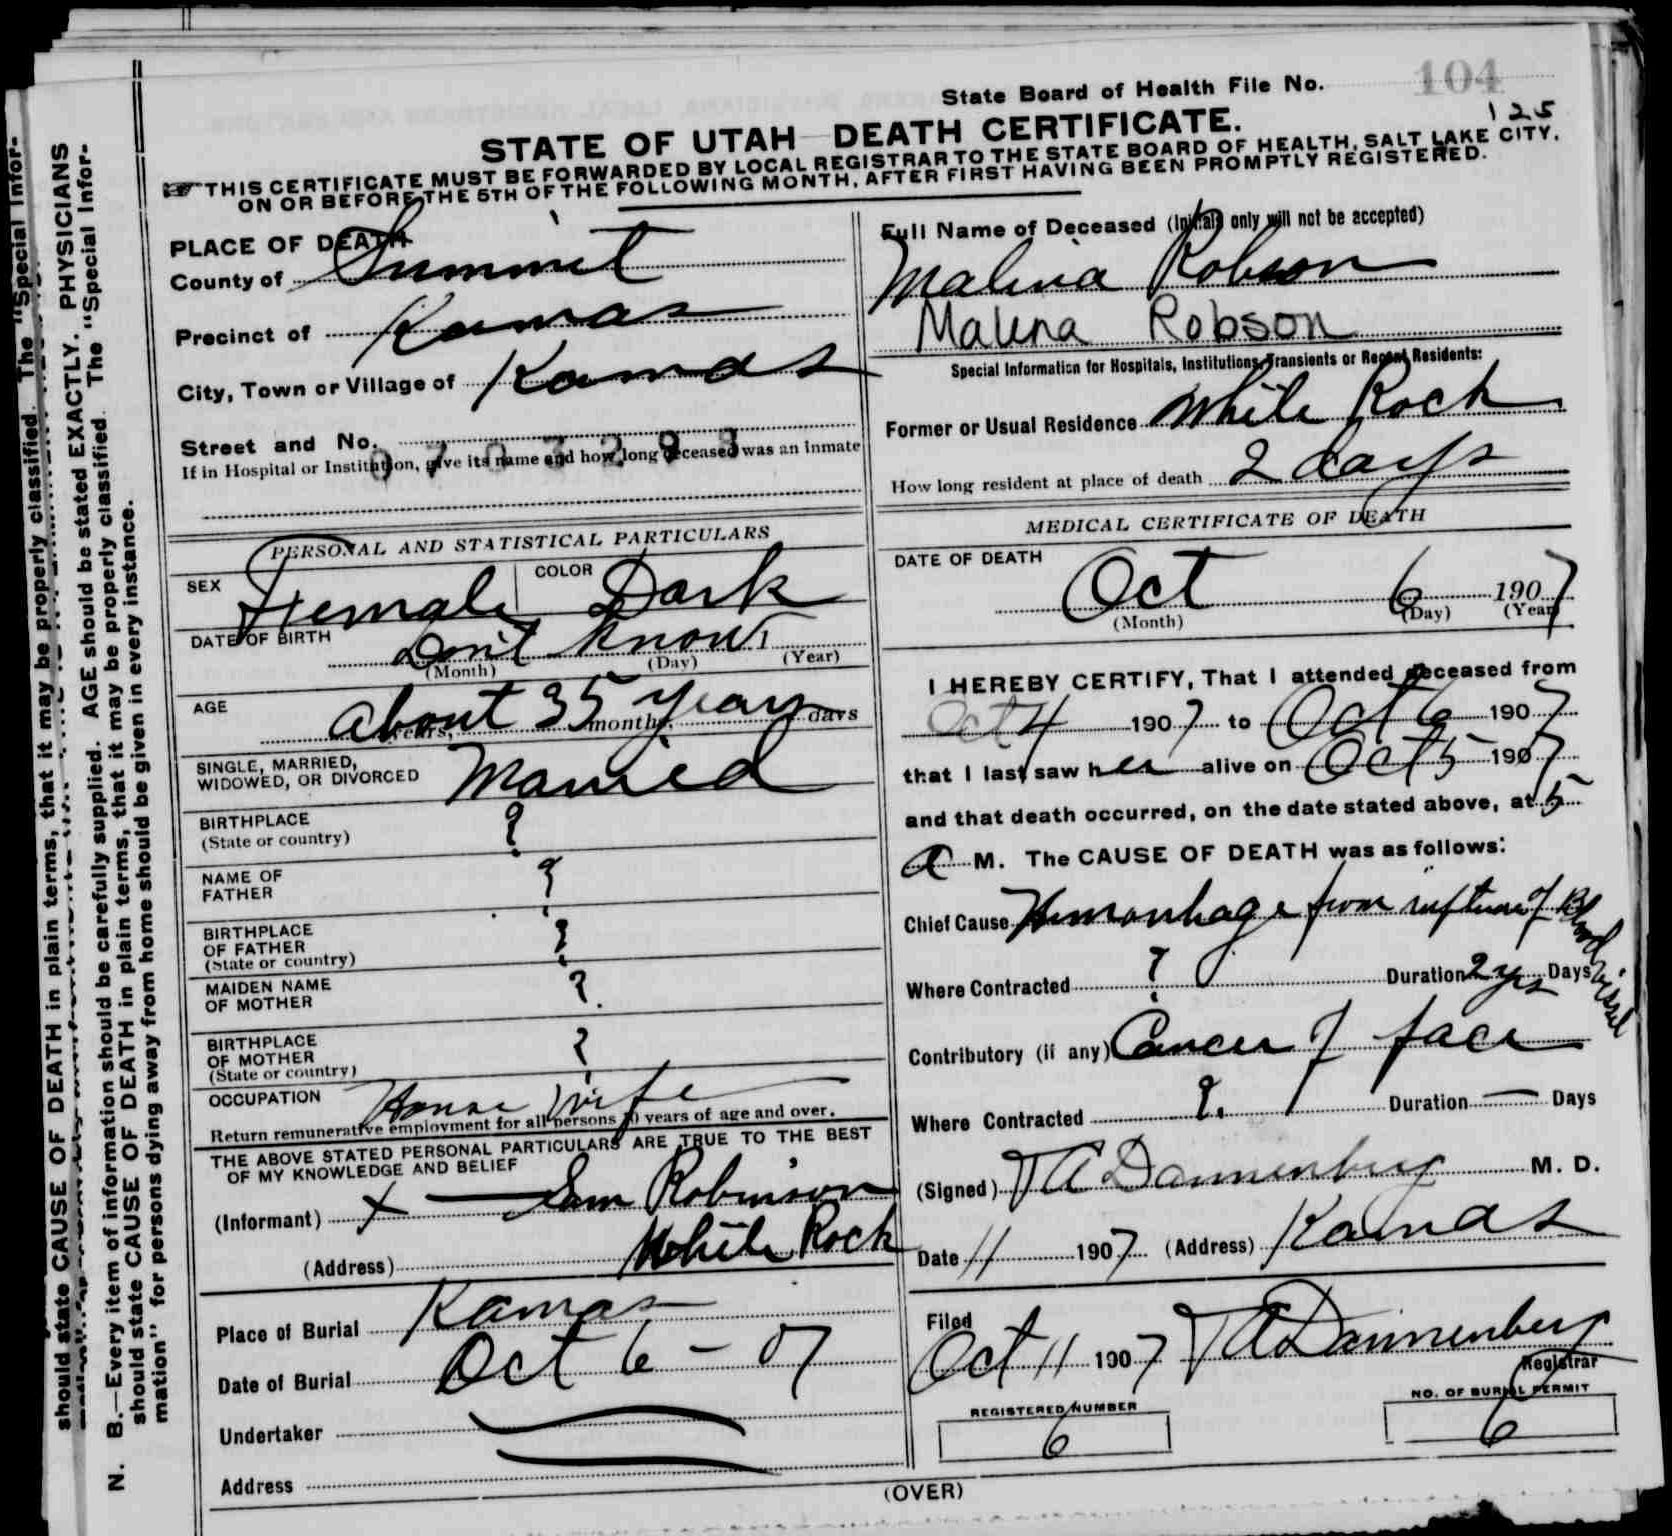 State Board of Health File No. 104
125
STATE OF UTAH DEATH CERTIFICATE.
THIS CERTIFICATE MUST BE FORWARDED BY LOCAL REGISTRAR TO THE STATE BOARD OF HEALTH, SALT LAKE CITY,
ON OR BEFORE THE 5TH OF THE FOLLOWING MONTH, AFTER FIRST HAVING BEEN PROMPTLY REGISTERED.
PLACE OF DEATH
County of Summit
Precinct of Kamas
City, Town or Village of Kamas
Street and No.
0703293
If in Hospital or Institution, give its name and how long deceased was an inmate
Full Name of Deceased (Initials only will not be accepted)
Malina Robson
Malina Robson
Special Information for Hospitals, Institutions, Transients or Recent Residents:
Former or Usual Residence White Rock
How long resident at place of death 2 days
PERSONAL AND STATISTICAL PARTICULARS
SEX Female COLOR Dark
DATE OF BIRTH Don't know
(Month) (Day) (Year)
AGE about 35 years
years, months, days
SINGLE, MARRIED,
WIDOWED, OR DIVORCED Married
BIRTHPLACE
(State or country) ?
NAME OF
FATHER ?
BIRTHPLACE
OF FATHER
(State or country) ?
MAIDEN NAME
OF MOTHER ?
BIRTHPLACE
OF MOTHER
(State or country) ?
OCCUPATION House wife
Return remunerative employment for all persons 10 years of age and over.
THE ABOVE STATED PERSONAL PARTICULARS ARE TRUE TO THE BEST
OF MY KNOWLEDGE AND BELIEF
(Informant) x — Sam Robinson
(Address) White Rock
Place of Burial Kamas
Date of Burial Oct 6 - 07
Undertaker
Address
MEDICAL CERTIFICATE OF DEATH
DATE OF DEATH
Oct 6 1907
(Month) (Day) (Year)
I HEREBY CERTIFY, That I attended deceased from
Oct 4 1907 to Oct 6 1907
that I last saw her alive on Oct 5 1907
and that death occurred, on the date stated above, at 5
A M. The CAUSE OF DEATH was as follows:
Chief Cause Hemorrhage from rupture of Blood vessel
Where Contracted ? Duration 2 yrs Days
Contributory (if any) Cancer of face
Where Contracted ? Duration — Days
(Signed) V A Dannenberg M. D.
Date 11 1907 (Address) Kamas
Filed
Oct 11 1907 V A Dannenberg
Registrar
REGISTERED NUMBER
6
NO. OF BURIAL PERMIT
6
(OVER)
N. B.—Every item of information should be carefully supplied. AGE should be stated EXACTLY. PHYSICIANS
should state CAUSE OF DEATH in plain terms, that it may be properly classified. The "Special Infor-
mation" for persons dying away from home should be given in every instance.
should state CAUSE OF DEATH in plain terms, that it may be properly classified. The "Special Infor-